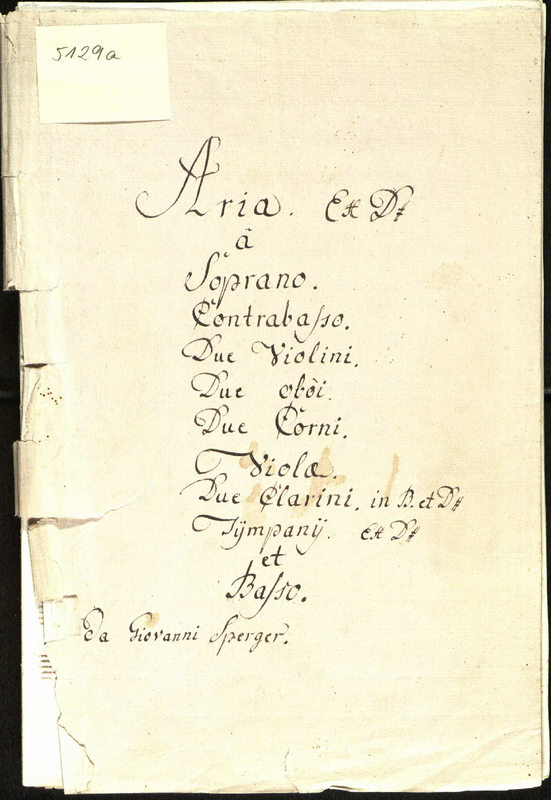 5129a
Aria. Ex D♯
à
Soprano.
Contrabasso.
Due Violini.
Due obòi.
Due Corni.
Violæ.
Due Clarini. in B. et D♯
Tÿmpanÿ. Ex D♯
et
Basso.
Da Giovanni Sperger.